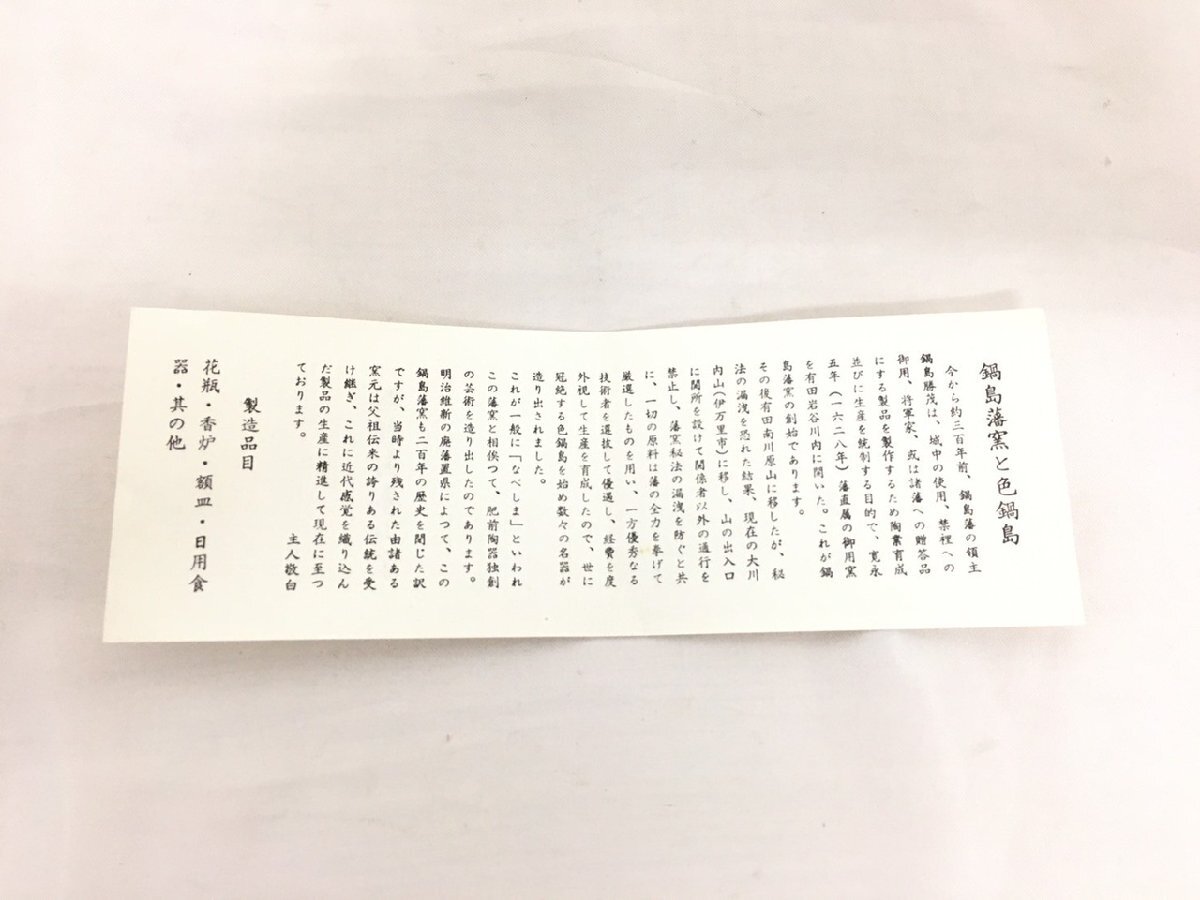 鍋島藩窯と色鍋島
今から約三百年前、鍋島藩の領主
鍋島勝茂は、城中の使用、禁裡への
御用、将軍家、或は諸藩への贈答品
にする製品を製作するため陶業育成
並びに生産を統制する目的で、寛永
五年(一六二八年)藩直属の御用窯
を有田岩谷川内に開いた。これが鍋
島藩窯の創始であります。
その後有田南川原山に移したが、秘
法の漏洩を恐れた結果、現在の大川
内山(伊万里市)に移し、山の出入口
に関所を設けて関係者以外の通行を
禁止し、藩窯秘法の漏洩を防ぐと共
に、一切の原料は藩の全力を挙げて
厳選したものを用い、一方優秀なる
技術者を選抜して優遇し、経費を度
外視して生産を育成したので、世に
冠絶する色鍋島を始め数々の名器が
造り出されました。
これが一般に「なべしま」といわれ
この藩窯と相俟つて、肥前陶器独創
の芸術を造り出したのであります。
明治維新の廃藩置県によつて、この
鍋島藩窯も二百年の歴史を閉じた訳
ですが、当時より残された由諸ある
窯元は父祖伝来の誇りある伝統を受
け継ぎ、これに近代感覚を織り込ん
だ製品の生産に精進して現在に至つ
ております。
主人敬白
製造品目
花瓶・香炉・額皿・日用食
器・其の他